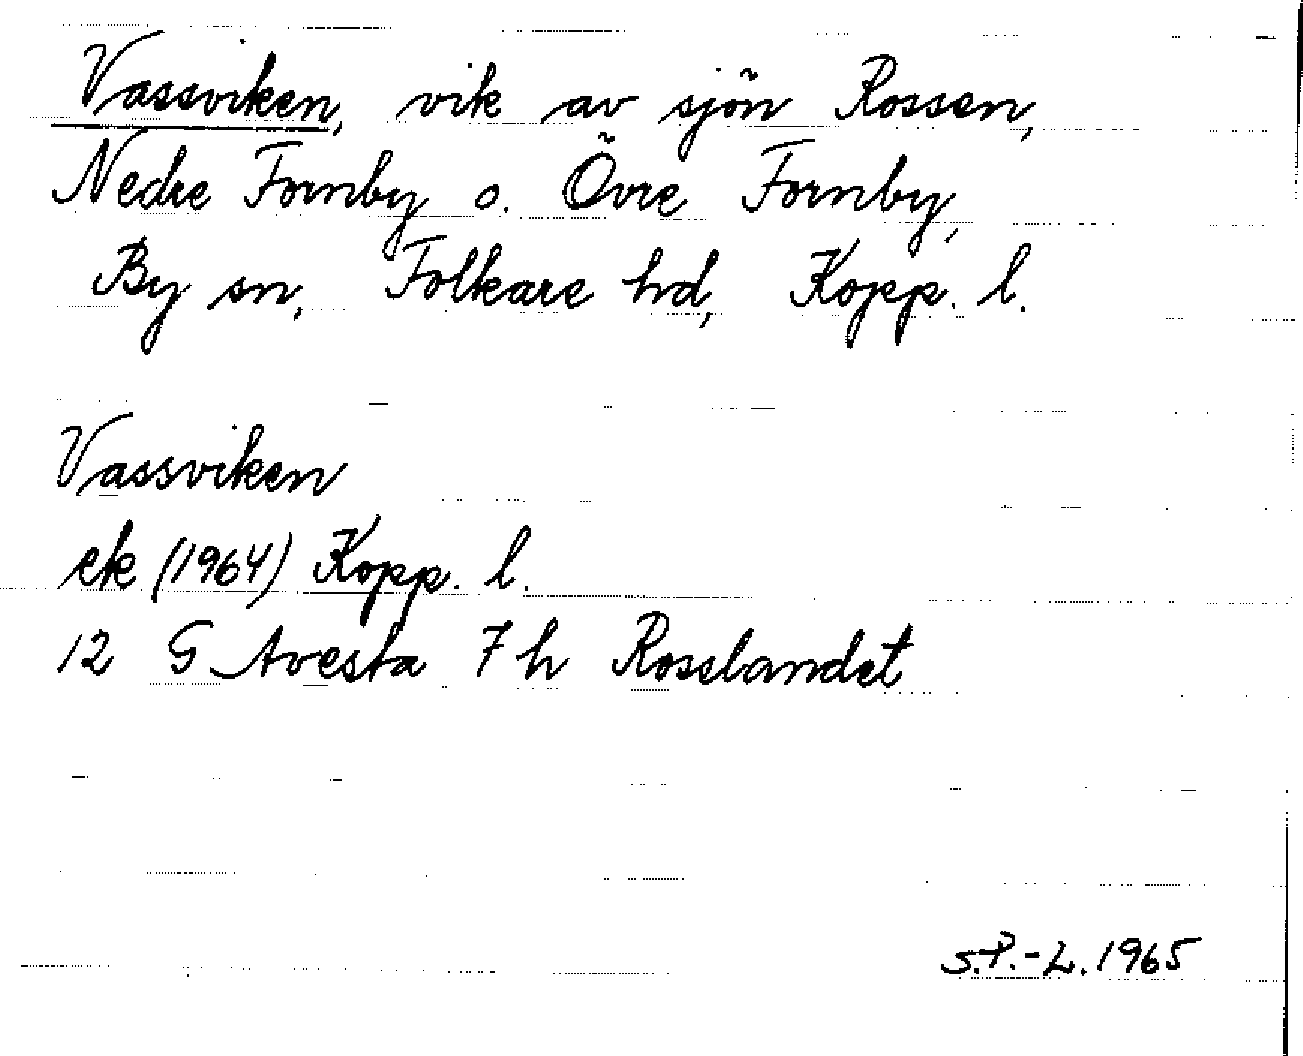 Vassviken, vik av sjön Rossen,
Nedre Fornby o. Övre Fornby,
By sn, Folkare hd, Kopp. l.
Vassviken
ek (1964) Kopp. l.
12 G Avesta 7 h Rosslandet
S.P.-L. 1965